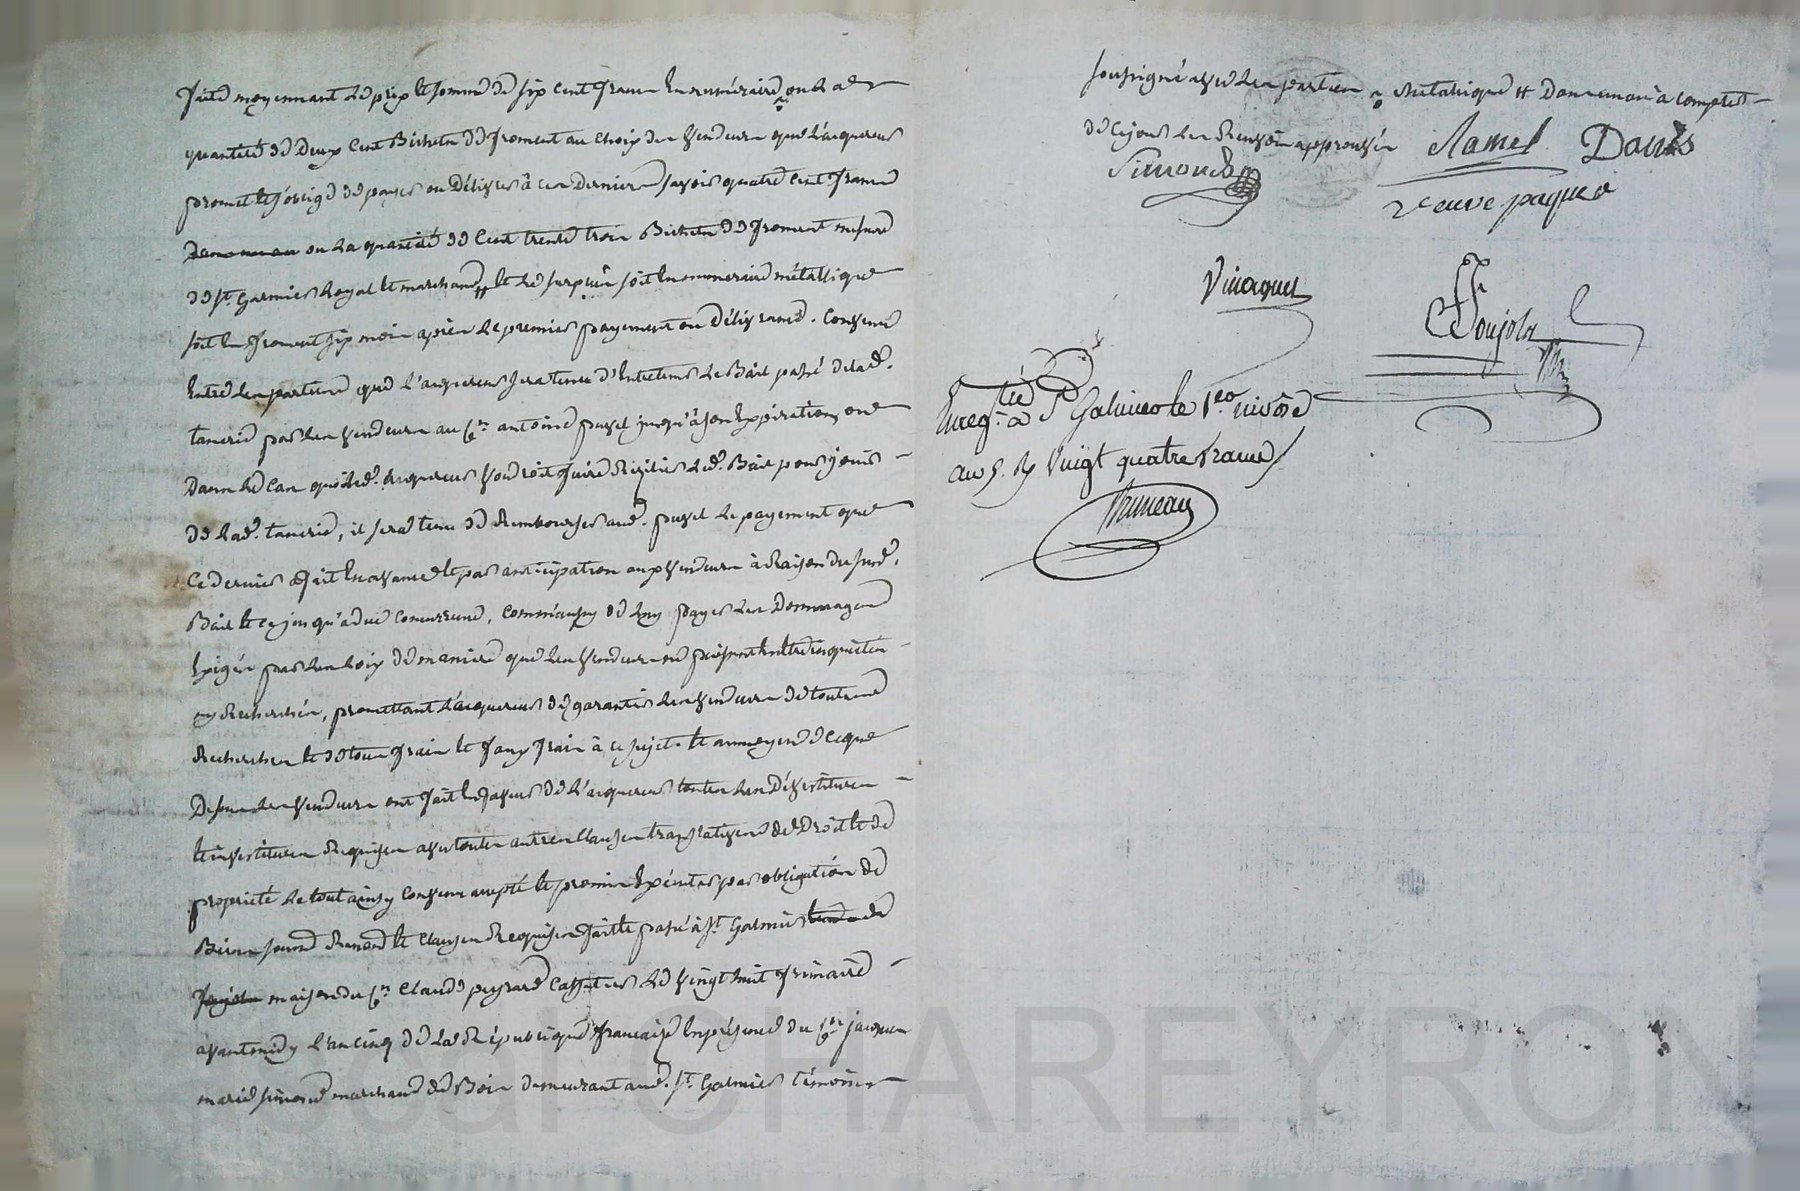 faite moyennant le prix et somme de six cent francs en numéraire ou la
quantité de deux cent Bichets de froment au choix des vendeurs que l'acquereur
promet et s'oblige de payer ou délivrer à ces derniers savoir quatre cent francs
ou la quantité de Cent trente trois Bichets de froment mesure
de st. Galmier Royal et marchand et le surplus soit en numeraire métallique
soit en froment six mois après le premier payement ou délivrance. Convenu
Entre les parties que l'acquereur sera tenu d'Entretenir le Bail passé de lad.
tanerie par les vendeurs au Cn. antoine puvel jusqu'à son Expiration, ou
Dans le Cas que led. acquereur voudroit faire Résilier led. Bail pour jouir
de lad. tanerie, il sera tenu de Rembourser aud. puvel le payement que
Ce dernier a fait En avance et par anticipation aux vendeurs à Raison du susd.
Bail et ce jusqu'a due Concurrence, Comm'aussy de luy payer les Dommages
Exigés par les loix de maniere que les vendeurs ne puissent être inquietés
ny Recherchés, promettant l'acquereur de garantir les vendeurs de toutes
Recherches et de tous frais et faux frais à ce sujet. Et au moyen de ce que
Dessus les vendeurs ont fait En faveur de l'acquereur toutes les Dévestitures
et investitures Requises avec toutes autres Clauses translatives de Droit et de
propriété le tout ainsy Convenu accepté et promis Exécuter par obligation de
Biens soumis Renoncé et Clauses Requises fait et passé à st. Galmier
maison du Cn. Claude peyrard Caffetier le vingt huit frimaire
avant midy l'an cinq de la République française En présence du Cn. jacques
marie simond marchand de Bois demeurant aud. st. Galmier témoin
soussigné avec les parties métallique Et Dans un an à compter
de ce jour les Renvois approuvés Ramel Danis
Simond
veuve paque
Vinaquet
Poujols
Enregtré à St Galmier le 1er nivôse
an 5. R vingt quatre francs